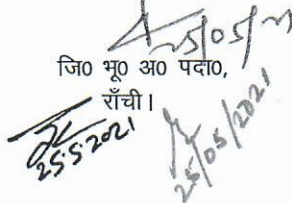 25/05/21
जि0 भू0 अ0 पदा0,
राँची।
25.5.2021
25/05/2021